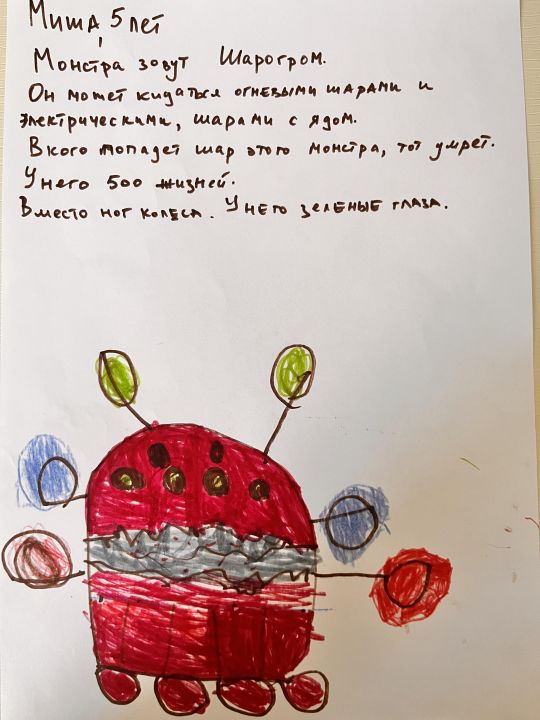 Миша, 5 лет
Монстра зовут Шарогром.
Он может кидаться огневыми шарами и
электрическими, шарами с ядом.
В кого попадет шар этого монстра, тот умрет.
У него 500 жизней.
Вместо ног колеса. У него зеленые глаза.